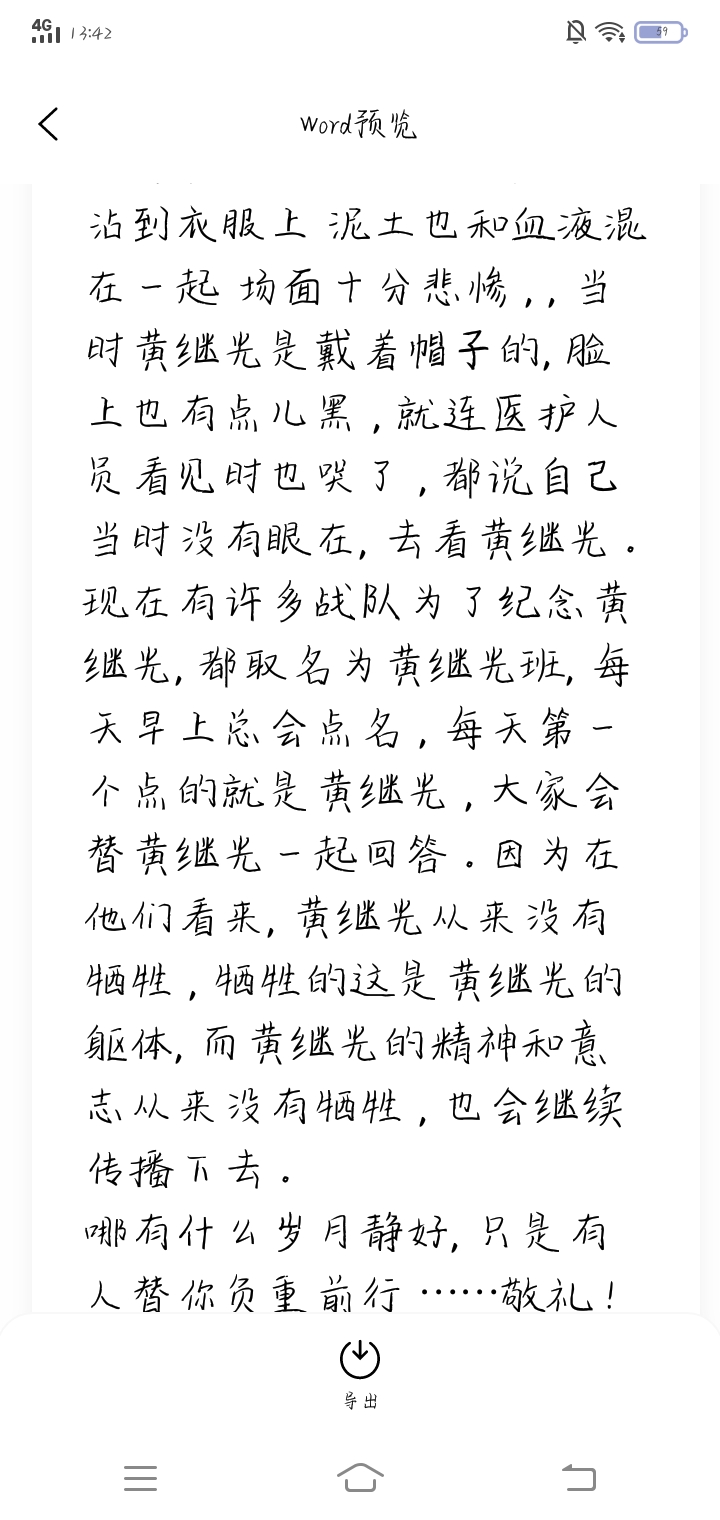 4G 13:42 59
Word预览
沾到衣服上 泥土也和血液混
在一起 场面十分悲惨,,当
时黄继光是戴着帽子的,脸
上也有点儿黑,就连医护人
员看见时也哭了,都说自己
当时没有眼在,去看黄继光。
现在有许多战队为了纪念黄
继光,都取名为黄继光班,每
天早上总会点名,每天第一
个点的就是黄继光,大家会
替黄继光一起回答。因为在
他们看来,黄继光从来没有
牺牲,牺牲的这是黄继光的
躯体,而黄继光的精神和意
志从来没有牺牲,也会继续
传播下去。
哪有什么岁月静好,只是有
人替你负重前行……敬礼!
导出